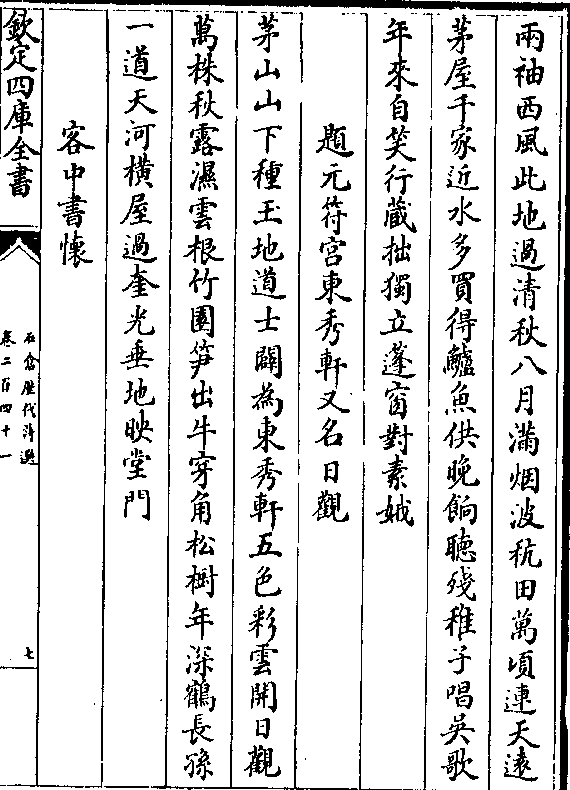 兩袖西風此地過清秋八月滿烟波秔田萬頃連天遠
茅屋千家近水多買得鱸魚供晚餉聽殘稚子唱吳歌
年來自笑行蔵拙獨立蓬窗對素娥
題元符宫東秀軒又名日觀
茅山山下種玉地道士闢為東秀軒五色彩雲開日觀
萬株秋露濕雲根竹園笋出牛穿角松樹年深鶴長孫
一道天河横屋過奎光垂地映堂門
客中書懷
欽定四庫全書
石倉歷代詩選
卷二百四十一
七